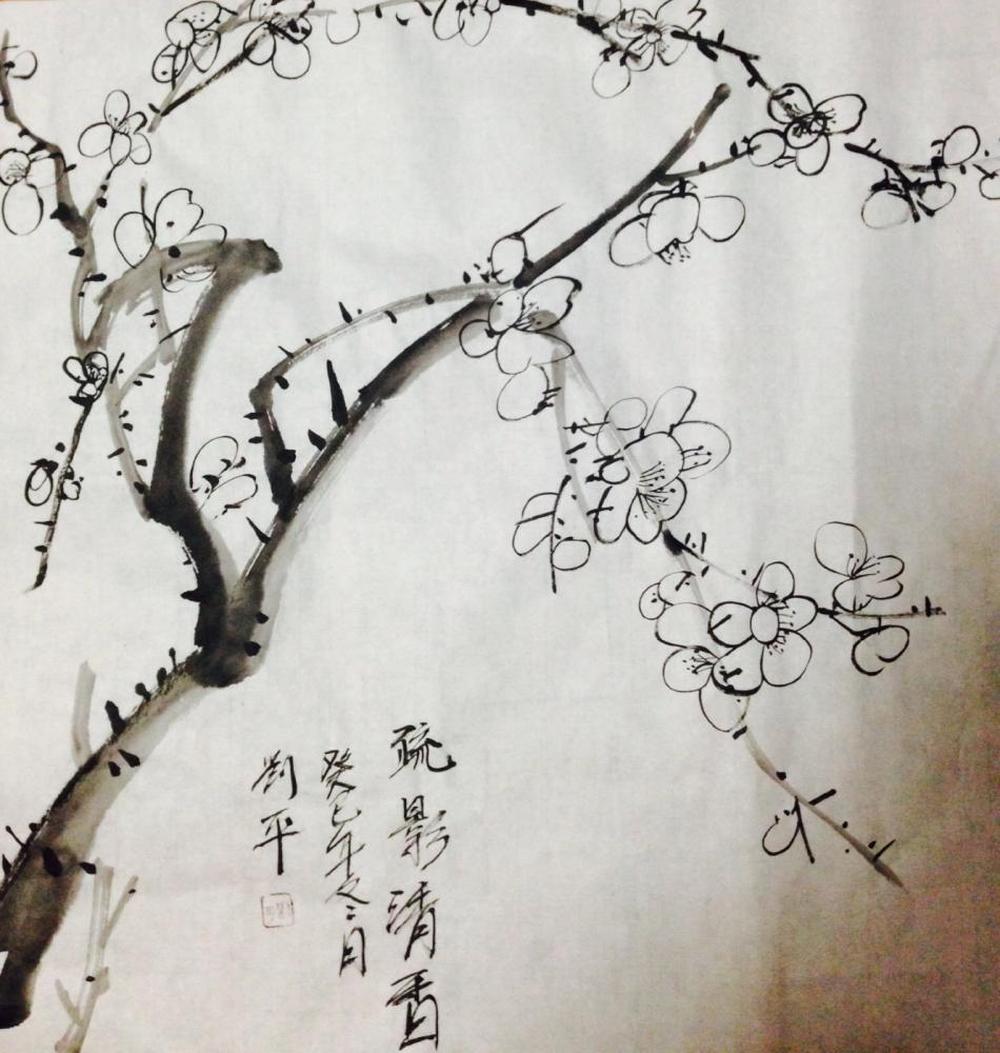 疏影清香
癸巳年冬月
劉平